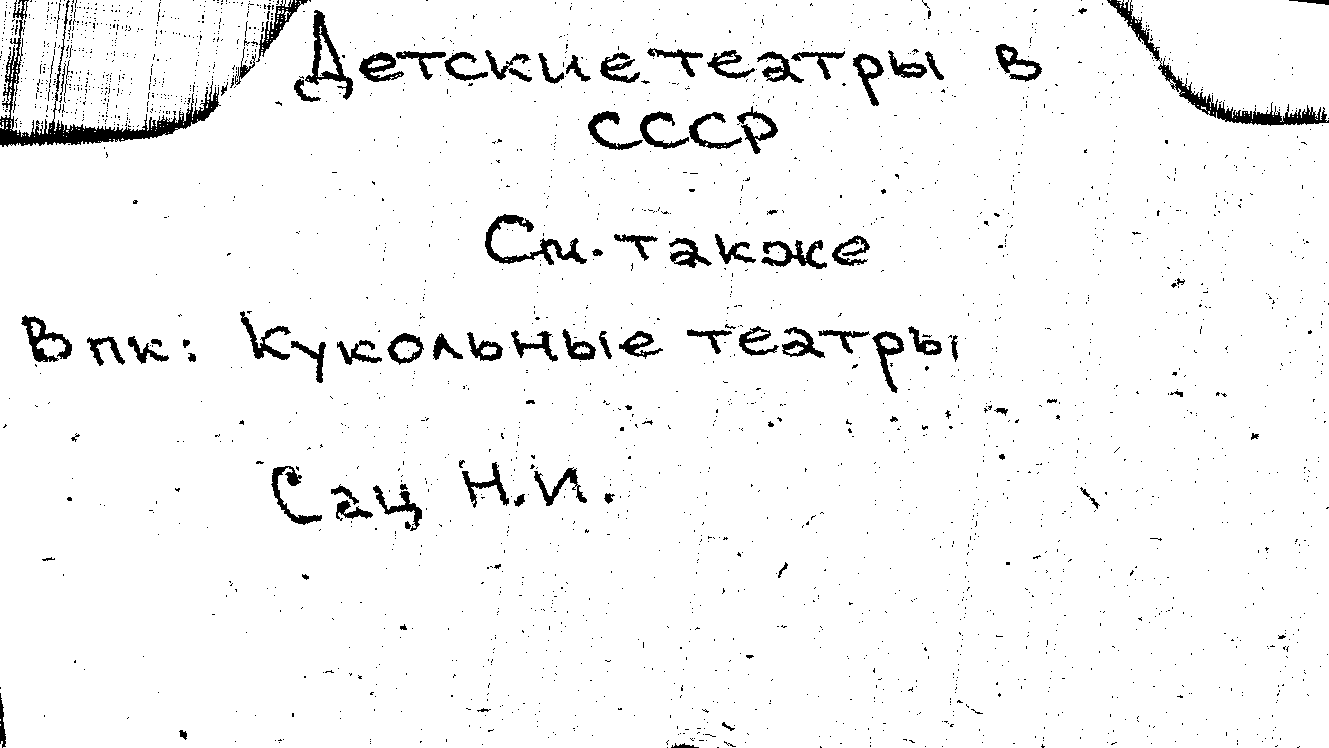 Детские театры в
СССР
См. также
В пк: Кукольные театры
Сац Н.И.